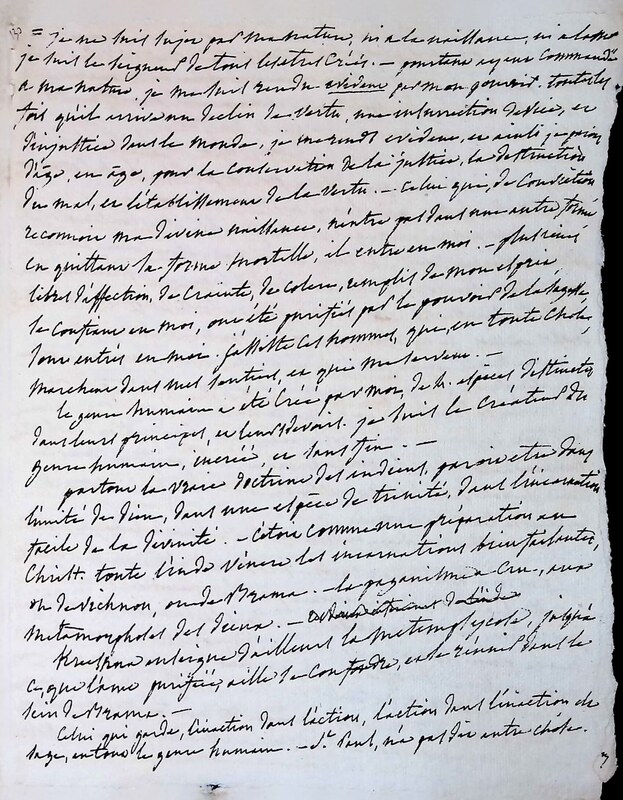 = je ne suis sujet par ma nature, ni a la naissance, ni a la mort
je suis le seigneur de tous les etres créés. — pourtant ayant commandé
a ma nature, je me suis rendu evident par mon pouvoir. toutes les
fois qu'il arrive un declin de vertu, une insurrection de vice, et
d'injustice dans le monde, je me rends evident, et ainsi je parois
d'âge, en âge, pour la conservation de la justice, la destruction
du mal, et l'établissement de la vertu. — Celui qui, de conviction
reconnoit ma divine naissance, n'entre pas dans une autre forme
en quittant la forme mortelle, il entre en moi. — plusieurs
libres d'affection, de crainte, de colere, remplis de mon esprit
se confiant en moi, ont été purifiés par le pouvoir de la sagesse
sont entrés en moi. j'assiste ces hommes, qui, en toute chose,
marchent dans mes sentiers, et qui me servent. —
le genre humain a été créé par moi, de 4. espèces distinctes
dans leurs principes, et leurs devoirs. je suis le créateur du
genre humain, incréé, et sans fin. —
partout la vraie doctrine des indiens, paroit etre dans
l'unité de dieu, dans une espèce de trinité, dans l'incarnation
facile de la divinité. — C'étoit comme une préparation au
Christ. toute l'inde vénere les incarnations bienfaisantes,
ou de Vichnou, ou de Brama. — le paganisme a cru, aux
métamorphoses des dieux. —
Kreshna enseigne d'ailleurs la métempsycose, jusqu'à
ce, que l'ame purifiée, aille se confondre, et se réunir dans le
sein de Brama. —
Celui qui garde, l'inaction dans l'action, l'action dans l'inaction est
sage, entre tout le genre humain. — St. Paul, n'a pas dit autre chose.